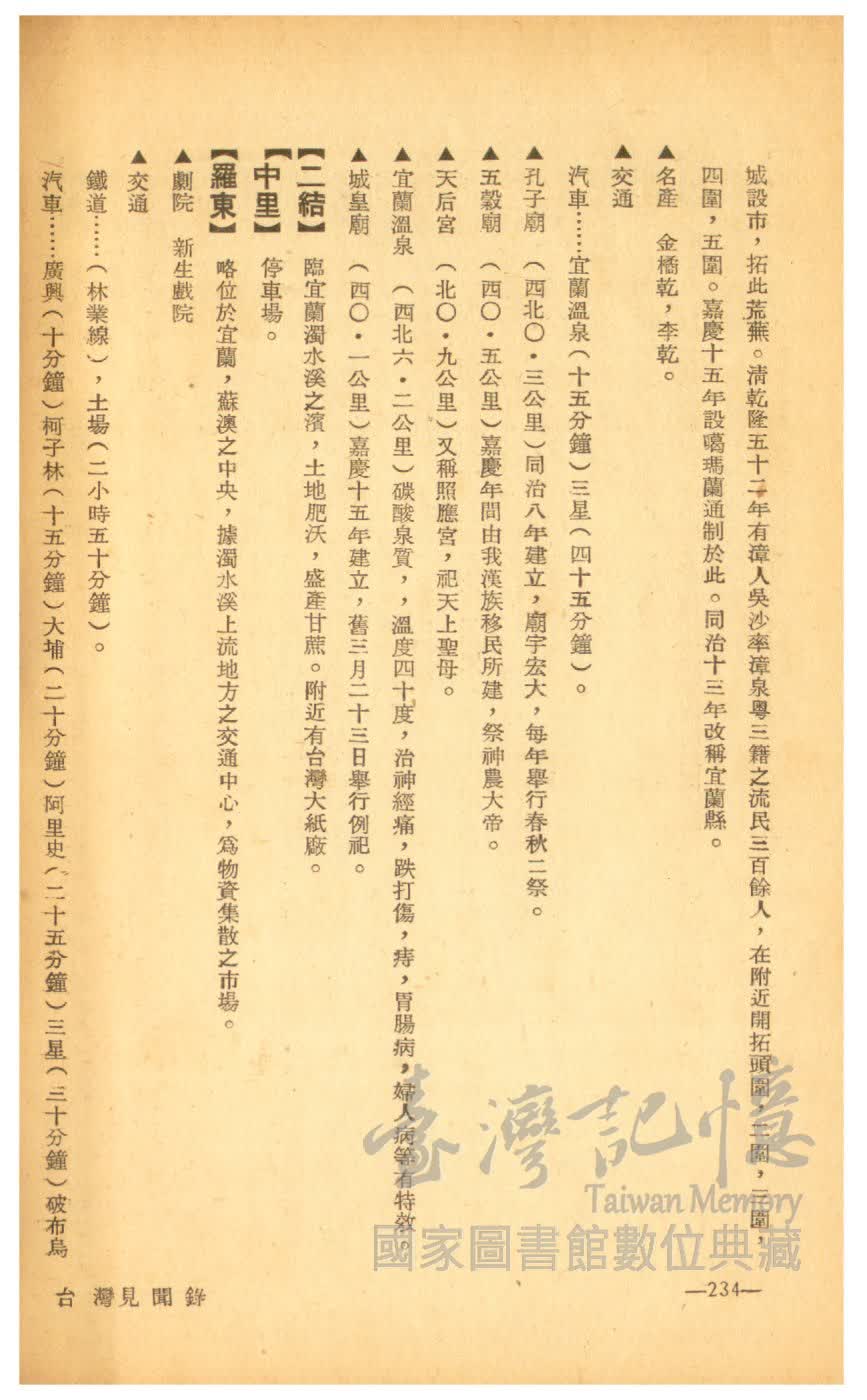 城設市，拓此荒蕪。清乾隆五十二年有漳人吳沙率漳泉粤三籍之流民三百餘人，在附近開拓頭圍，二圍，三圍，
四圍，五圍。嘉慶十五年設噶瑪蘭通制於此。同治十三年改稱宜蘭縣。
▲名產　金橘乾，李乾。
▲交通
汽車……宜蘭溫泉（十五分鐘）三星（四十五分鐘）。
▲孔子廟　（西北〇・三公里）同治八年建立，廟宇宏大，每年舉行春秋二祭。
▲五穀廟　（西〇・五公里）嘉慶年間由我漢族移民所建，祭神農大帝。
▲天后宮　（北〇・九公里）又稱照應宮，祀天上聖母。
▲宜蘭溫泉　（西北六・二公里）碳酸泉質，，溫度四十度，治神經痛，跌打傷，痔，胃腸病，婦人病等有特效。
▲城皇廟　（西〇・一公里）嘉慶十五年建立，舊三月二十三日舉行例祀。
【二結】　臨宜蘭濁水溪之濱，土地肥沃，盛產甘蔗。附近有台灣大紙廠。
【中里】　停車場。
【羅東】　略位於宜蘭，蘇澳之中央，據濁水溪上流地方之交通中心，爲物資集散之市場。
▲劇院　新生戲院
▲交通
鐵道……（林業線），土場（二小時五十分鐘）。
汽車……廣興（十分鐘）柯子林（十五分鐘）大埔（二十分鐘）阿里史（二十五分鐘）三星（三十分鐘）破布烏
台灣見聞錄
—234—
臺灣記憶
Taiwan Memory
國家圖書館數位典藏